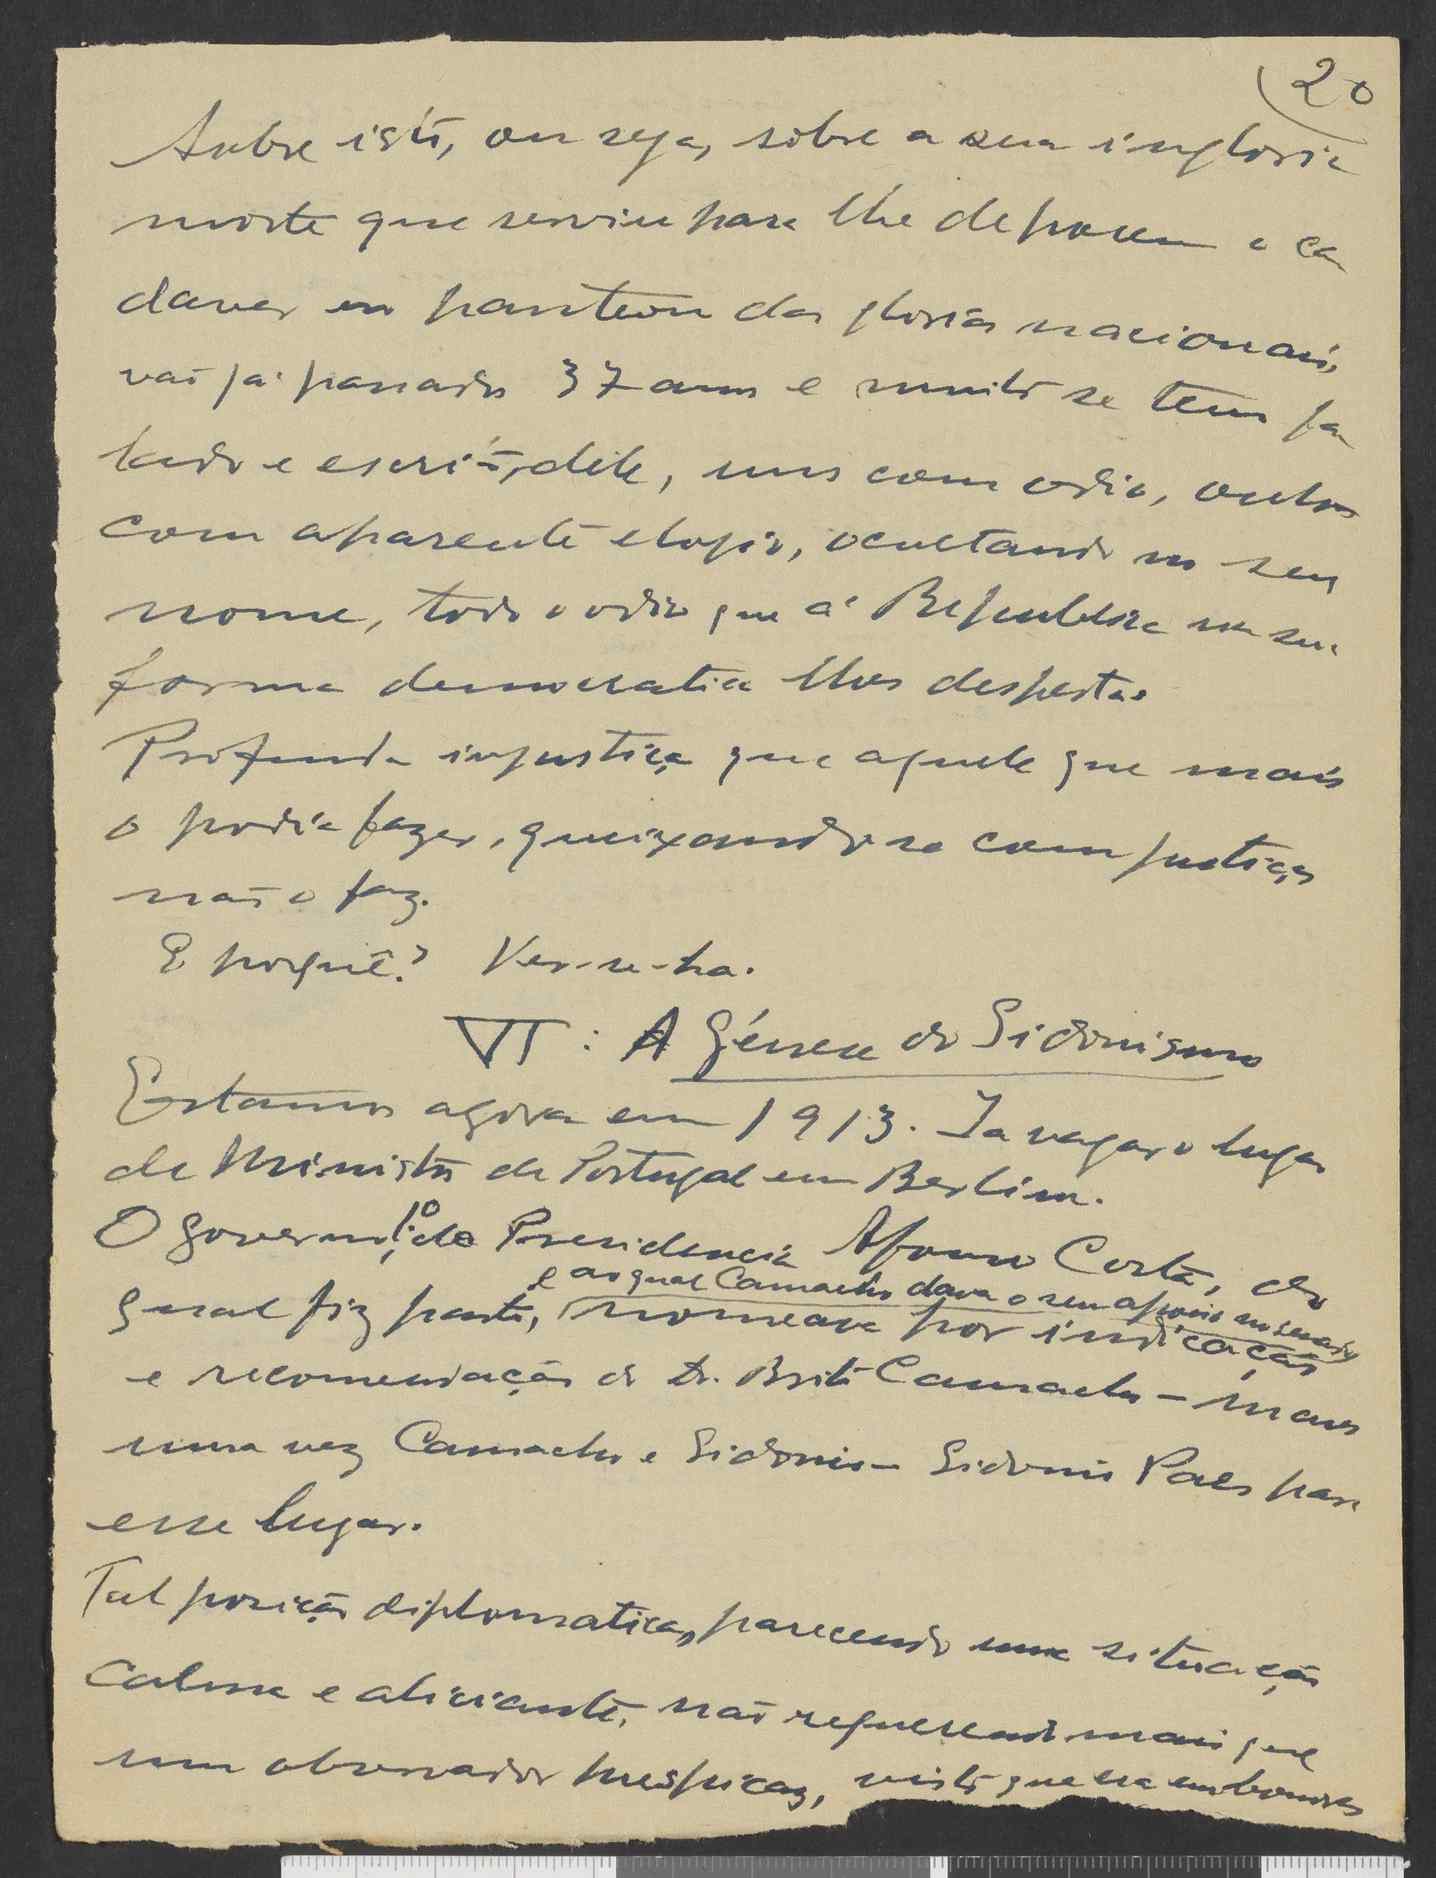 20
Sobre isto, ou seja, sôbre a sua ingloria
morte que serviu para lhe deporem o ca
daver no panteon das glorias nacionais,
vão já passados 37 anos e muito se tem fa
lado e escrito, dele, uns com odio, outros
com aparente elogio, ocultando no seu
nome, todo o odio que á Republica na sua
forma democratica lhes desperta.
Profunda injustiça que aquele que mais
o podia fazer, queixando-se com justiça,
não o faz.
E porquê? Ver-se-ha.
VI: A Génese do Sidonismo
Estamos agora em 1913. Ia vagar o lugar
de Ministro de Portugal em Berlim.
O governo, 1º da Presidencia Afonso Costa, do
e ao qual Camacho dava o seu apoio no senado
qual fiz parte, nomeava por indicação
e recomendação do Dr. Brito Camacho – mais
uma vez Camacho e Sidonio – Sidonio Paes para
esse lugar.
Tal posição diplomatica, parecendo uma situação
calma e aliciante, não requerendo mais que
um observador perspicaz, visto que era